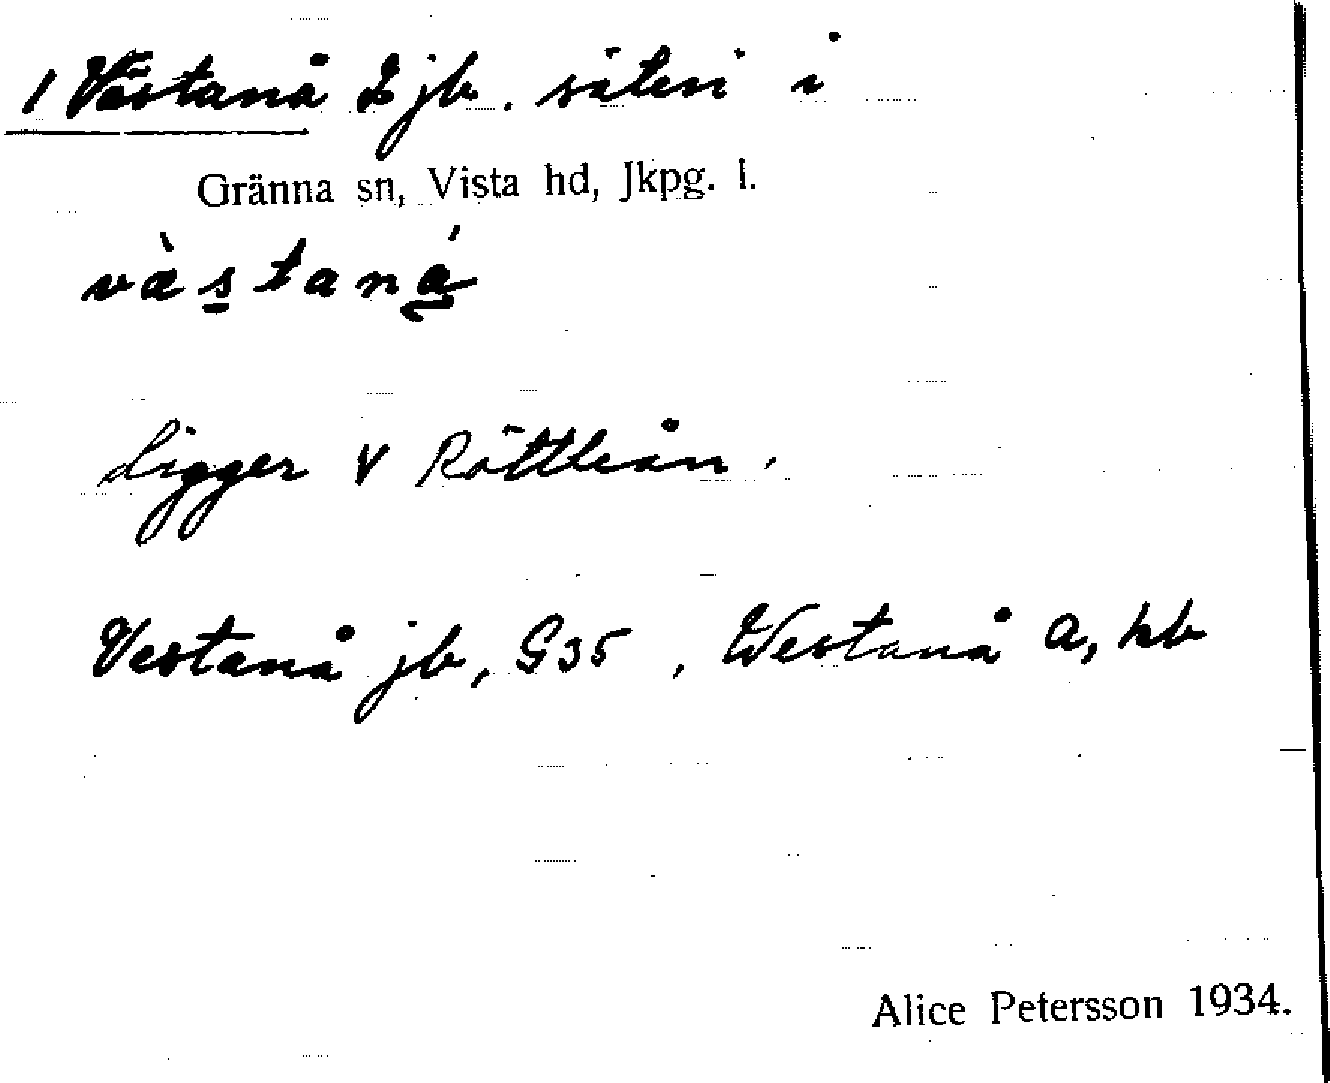 1 Västanå 2 jb. säteri i
Gränna sn, Vista hd, Jkpg. l.
vàstaná
Ligger V Röttleån.
Vestanå jb, G35, Westanå a, kb
Alice Petersson 1934.